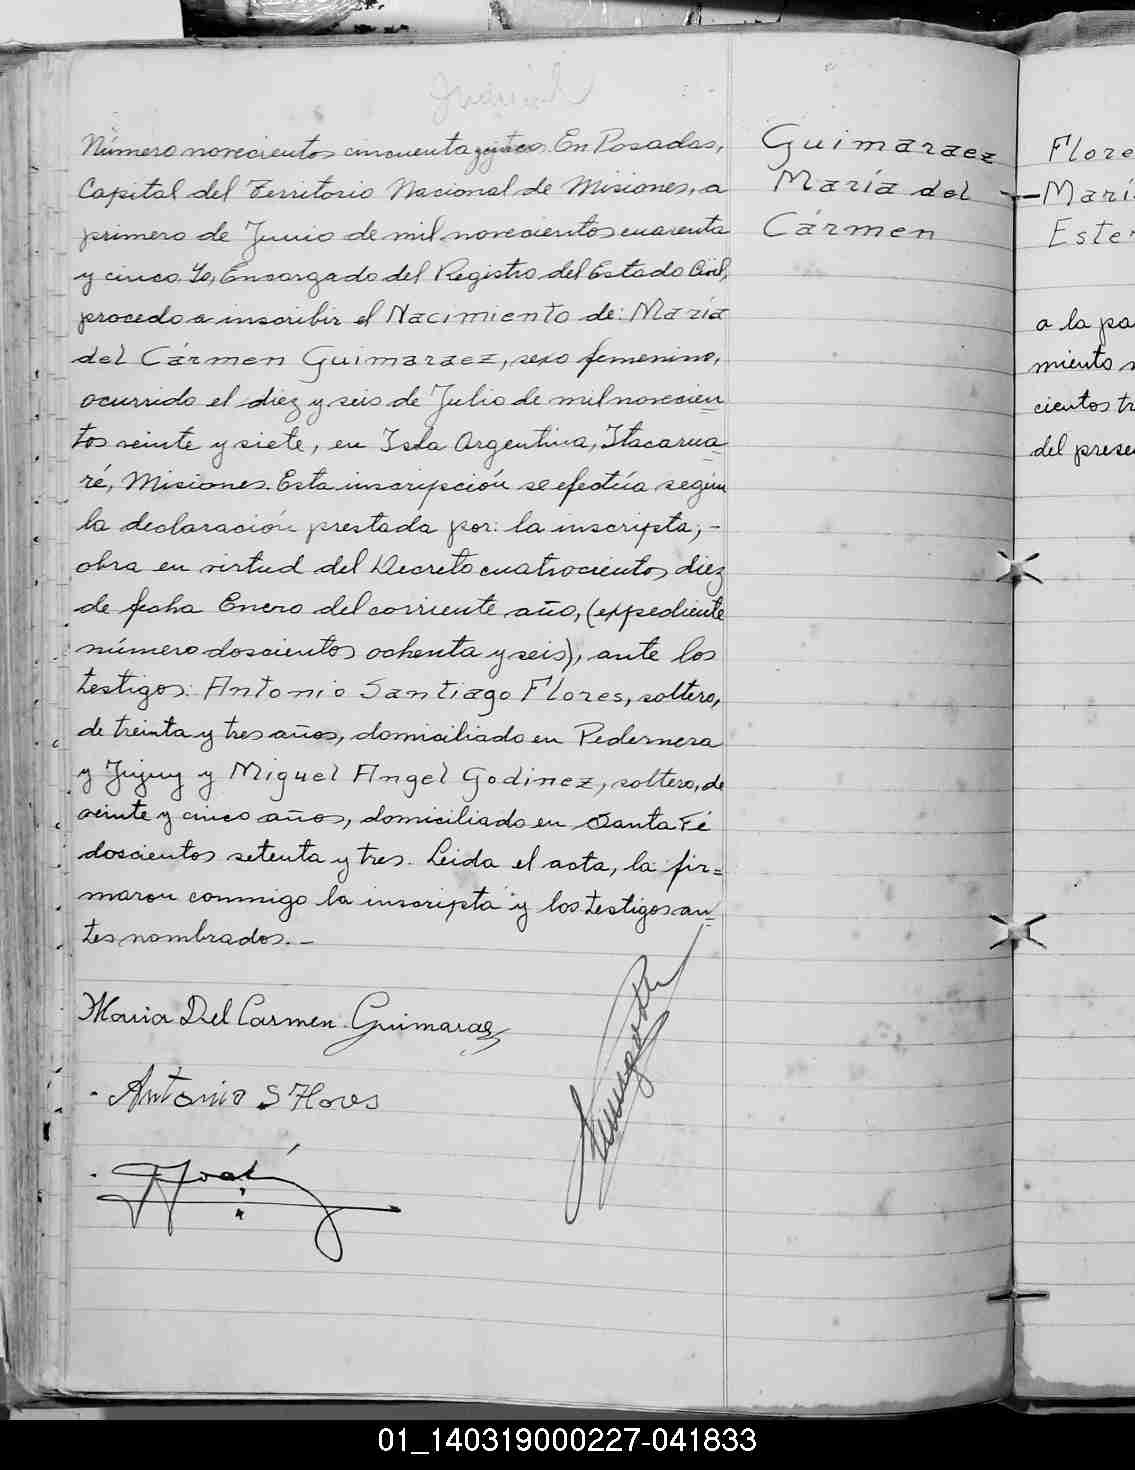 Número novecientos cincuenta y cinco. En Posadas,
Capital del Territorio Nacional de Misiones, a
primero de Junio de mil novecientos cuarenta
y cinco. Yo, Encargado del Registro del Estado Civil,
procedo a inscribir el Nacimiento de: María
del Cármen Guimaraez, sexo femenino,
ocurrido el diez y seis de Julio de mil novecien
tos veinte y siete, en Isla Argentina, Itacarua-
ré, Misiones. Esta inscripción se efectúa según
la declaración prestada por: la inscripta; -
obra en virtud del Decreto cuatrocientos diez
de fecha Enero del corriente año, (expediente
número doscientos ochenta y seis), ante los
testigos: Antonio Santiago Flores, soltero,
de treinta y tres años, domiciliado en Pedernera
y Jujuy y Miguel Angel Godinez, soltero, de
veinte y cinco años, domiciliado en Santa Fé
doscientos setenta y tres. Leida el acta, la fir=
maron conmigo la inscripta y los testigos an=
tes nombrados. -
Maria Del Carmen Guimaraez
Antonio S Flores
Guimaraez
María del
Cármen
Flore
Marí
Este
a la pa
miento
cientos tr
del prese
01_140319000227-041833